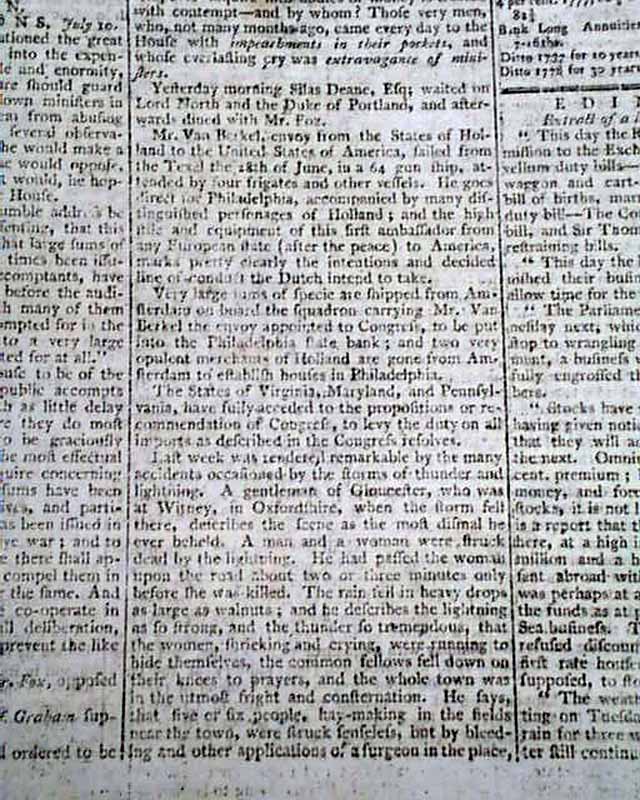 N.
N S. July 10.
utioned the great
into the expen-
le and enormity,
re should guard
own ministers in
em from abusing
several observa-
he would make a
se would oppose.
t would, he hop-
House.
umble address be
senting, that this
that large sums of
times been issu-
ccomptants, have
before the audi-
h many of them
mpted for in the
to a very large
ted for at all."
ouse to be of the
public accompts
th as little delay
re they do most
o be graciously
he most effectual
quire concerning
sums have been
ives, and parti-
as been issued in
ve war; and to
e there shall ap-
compel them in
r the same. And
co-operate in
ll deliberation,
prevent the like
r. Fox, opposed
r. Graham sup-
d ordered to be
with contempt—and by whom? Those very men,
who, not many months ago, came every day to the
House with impeachments in their pockets, and
whose everlasting cry was extravagance of mini-
sters.
Yesterday morning Silas Deane, Esq; waited on
Lord North and the Duke of Portland, and after-
wards dined with Mr. Fox.
Mr. Van Berkel, envoy from the States of Hol-
land to the United States of America, sailed from
the Texel the 28th of June, in a 64 gun ship, at-
tended by four frigates and other vessels. He goes
direct for Philadelphia, accompanied by many dis-
tinguished personages of Holland; and the high
stile and equipment of this first ambassador from
any European state (after the peace) to America,
marks pretty clearly the intentions and decided
line of conduct the Dutch intend to take.
Very large sums of specie are shipped from Am-
sterdam on board the squadron carrying Mr. Van
Berkel the envoy appointed to Congress, to be put
into the Philadelphia state bank; and two very
opulent merchants of Holland are gone from Am-
sterdam to establish houses in Philadelphia.
The States of Virginia, Maryland, and Pennsyl-
vania, have fully acceded to the propositions or re-
commendation of Congress, to levy the duty on all
imports as described in the Congress resolves.
Last week was rendered remarkable by the many
accidents occasioned by the storms of thunder and
lightning. A gentleman of Gloucester, who was
at Witney, in Oxfordshire, when the storm fell
there, describes the scene as the most dismal he
ever beheld. A man and a woman were struck
dead by the lightning. He had passed the woman
upon the road about two or three minutes only
before she was killed. The rain fell in heavy drops
as large as walnuts; and he describes the lightning
as so strong, and the thunder so tremendous, that
the women, shrieking and crying, were running to
hide themselves, the common fellows fell down on
their knees to prayers, and the whole town was
in the utmost fright and consternation. He says,
that five or six people, hay-making in the fields
near the town, were struck senseless, but by bleed-
ing and other applications of a surgeon in the place,
4 per cent.
81½
Bank Long Annuities
Ditto 1777 for 10 years
Ditto 1778 for 30 years
E D I
Extract of a l
" This day the
mission to the Exch
vellum duty bills—
waggon and cart-
bill of births, mar
duty bill—The Co
bill, and Sir Thom
restraining bills.
" This day the
nished their busin
allow time for the
" The Parliame
nesday next, whic
stop to wrangling
ment, a business
fully engrossed th
bers.
" Stocks have
having given notic
that they will a
the next. Omni
cent. premium;
money, and for
stocks, it is not
is a report that
there, at a high in
million and a h
sent abroad wit
was perhaps at a
the funds as at
Sea business. T
refused discoun
first rate house
supposed, to sto
" The weat
ting on Tuesda
rain for three w
ter still continu